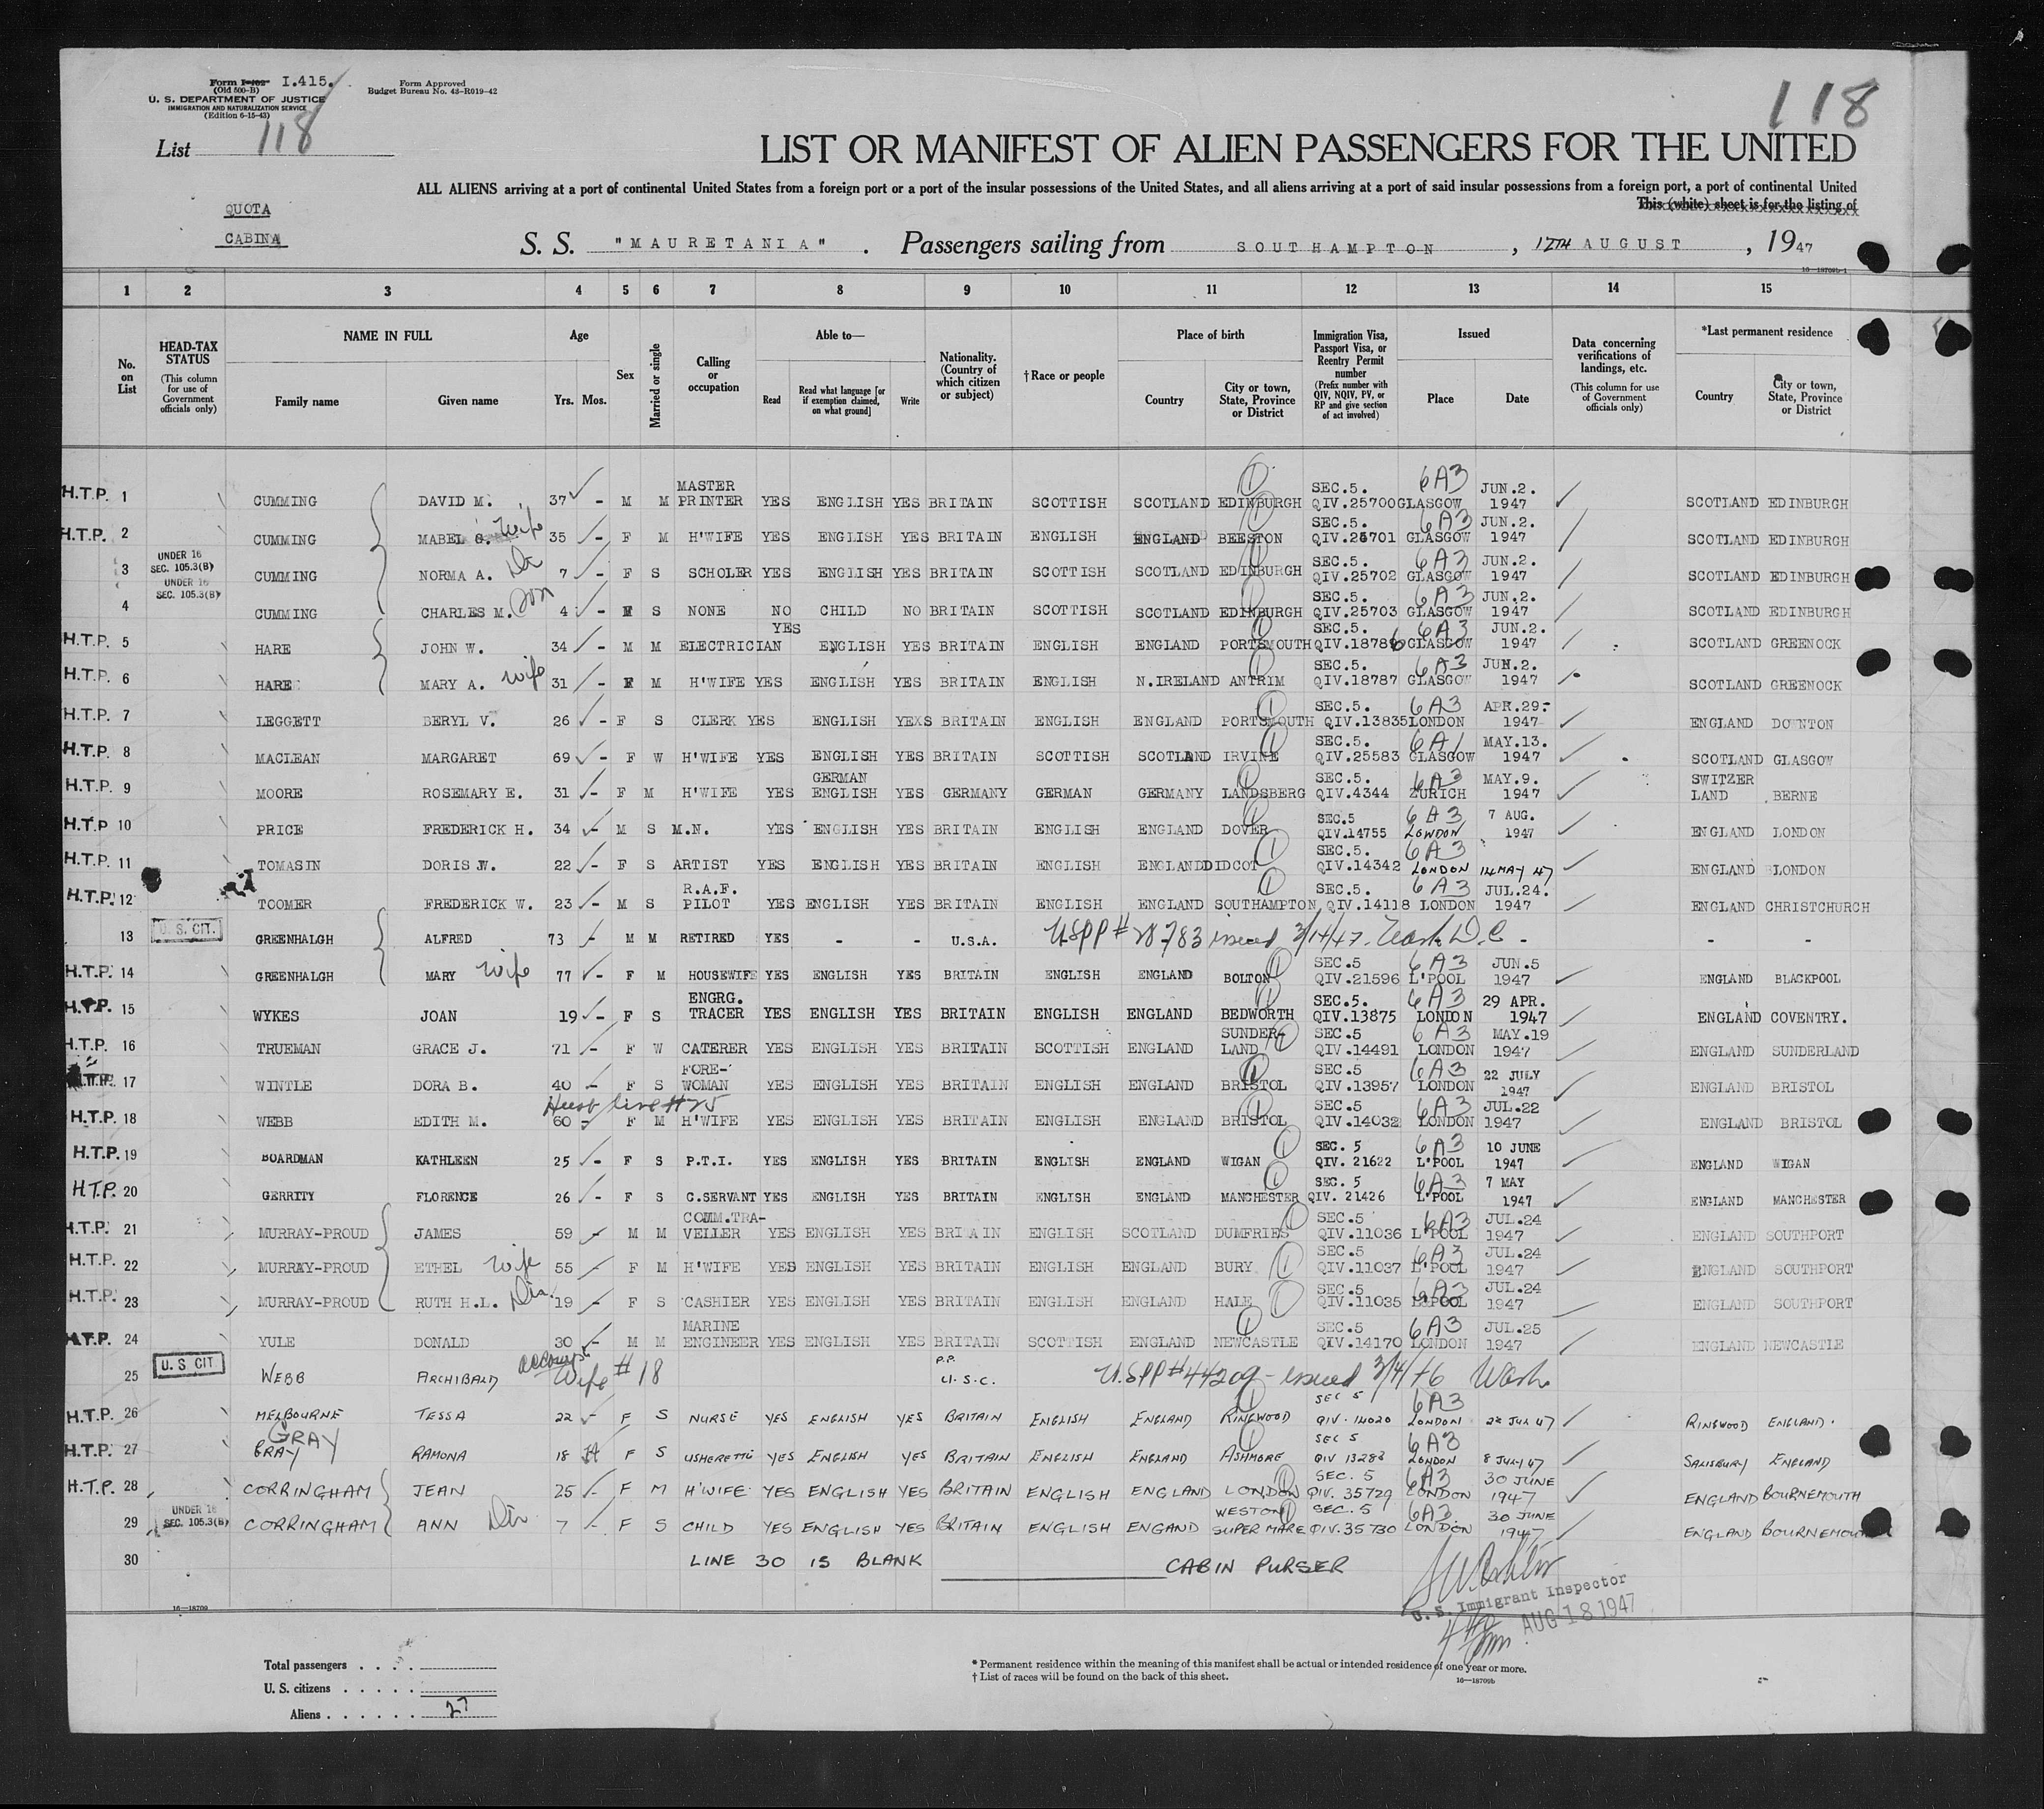 Form I-402 I.415.
(Old 500-B)
U. S. DEPARTMENT OF JUSTICE
IMMIGRATION AND NATURALIZATION SERVICE
(Edition 6-15-43)
Form Approved
Budget Bureau No. 43-R019-42
118
List 118
LIST OR MANIFEST OF ALIEN PASSENGERS FOR THE UNITED
ALL ALIENS arriving at a port of continental United States from a foreign port or a port of the insular possessions of the United States, and all aliens arriving at a port of said insular possessions from a foreign port, a port of continental United
This (white) sheet is for the listing of
QUOTA
CABINA
S. S. "MAURETANIA" . Passengers sailing from SOUTHAMPTON , 12TH AUGUST , 1947
16—18709b-1
1 2 3 4 5 6 7 8 9 10 11 12 13 14 15
No. on List
HEAD-TAX STATUS (This column for use of Government officials only)
NAME IN FULL Family name Given name
Age Yrs. Mos.
Sex
Married or single
Calling or occupation
Able to— Read Read what language [or if exemption claimed, on what ground] Write
Nationality. (Country of which citizen or subject)
†Race or people
Place of birth Country City or town, State, Province or District
Immigration Visa, Passport Visa, or Reentry Permit number (Prefix number with QIV, NQIV, PV, or RP and give section of act involved)
Issued Place Date
Data concerning verifications of landings, etc. (This column for use of Government officials only)
*Last permanent residence Country City or town, State, Province or District
H.T.P. 1 CUMMING DAVID M. 37 - M M MASTER PRINTER YES ENGLISH YES BRITAIN SCOTTISH SCOTLAND EDINBURGH SEC.5. QIV.25700 6A3 GLASGOW JUN.2. 1947 SCOTLAND EDINBURGH
H.T.P. 2 CUMMING MABEL S. wife 35 - F M H'WIFE YES ENGLISH YES BRITAIN ENGLISH ENGLAND BEESTON SEC.5. QIV.25701 6A3 GLASGOW JUN.2. 1947 SCOTLAND EDINBURGH
3 UNDER 16 SEC. 105.3(B) CUMMING NORMA A. Dtr 7 - F S SCHOLER YES ENGLISH YES BRITAIN SCOTTISH SCOTLAND EDINBURGH SEC.5. QIV.25702 6A3 GLASGOW JUN.2. 1947 SCOTLAND EDINBURGH
4 UNDER 16 SEC. 105.3(B) CUMMING CHARLES M. son 4 - M S NONE NO CHILD NO BRITAIN SCOTTISH SCOTLAND EDINBURGH SEC.5. QIV.25703 6A3 GLASGOW JUN.2. 1947 SCOTLAND EDINBURGH
H.T.P. 5 HARE JOHN W. 34 - M M ELECTRICIAN YES ENGLISH YES BRITAIN ENGLISH ENGLAND PORTSMOUTH SEC.5. QIV.18786 6A3 GLASGOW JUN.2. 1947 SCOTLAND GREENOCK
H.T.P. 6 HARE MARY A. wife 31 - F M H'WIFE YES ENGLISH YES BRITAIN ENGLISH N.IRELAND ANTRIM SEC.5. QIV.18787 6A3 GLASGOW JUN.2. 1947 SCOTLAND GREENOCK
H.T.P. 7 LEGGETT BERYL V. 26 - F S CLERK YES ENGLISH YEXS BRITAIN ENGLISH ENGLAND PORTSMOUTH SEC.5. QIV.13835 6A3 LONDON APR.29. 1947 ENGLAND DOWNTON
H.T.P. 8 MACLEAN MARGARET 69 - F W H'WIFE YES ENGLISH YES BRITAIN SCOTTISH SCOTLAND IRVINE SEC.5. QIV.25583 6A1 GLASGOW MAY.13. 1947 SCOTLAND GLASGOW
H.T.P. 9 MOORE ROSEMARY E. 31 - F M H'WIFE YES GERMAN ENGLISH YES GERMANY GERMAN GERMANY LANDSBERG SEC.5. QIV.4344 6A3 ZURICH MAY.9. 1947 SWITZER LAND BERNE
H.T.P 10 PRICE FREDERICK H. 34 - M S M.N. YES ENGLISH YES BRITAIN ENGLISH ENGLAND DOVER SEC.5 QIV.14755 6A3 LONDON 7 AUG. 1947 ENGLAND LONDON
H.T.P. 11 TOMASIN DORIS W. 22 - F S ARTIST YES ENGLISH YES BRITAIN ENGLISH ENGLAND DIDCOT SEC.5. QIV.14342 6A3 LONDON 14 MAY 47 ENGLAND LONDON
H.T.P. 12 TOOMER FREDERICK W. 23 - M S R.A.F. PILOT YES ENGLISH YES BRITAIN ENGLISH ENGLAND SOUTHAMPTON SEC.5. QIV.14118 6A3 LONDON JUL.24. 1947 ENGLAND CHRISTCHURCH
13 U. S. CIT. GREENHALGH ALFRED 73 - M M RETIRED YES - - U.S.A. USPP # 28783 issued 3/14/47. Wash D.C - - -
H.T.P. 14 GREENHALGH MARY wife 77 - F M HOUSEWIFE YES ENGLISH YES BRITAIN ENGLISH ENGLAND BOLTON SEC.5 QIV.21596 6A3 L'POOL JUN.5 1947 ENGLAND BLACKPOOL
H.T.P. 15 WYKES JOAN 19 - F S ENGRG. TRACER YES ENGLISH YES BRITAIN ENGLISH ENGLAND BEDWORTH SEC.5. QIV.13875 6A3 LONDON 29 APR. 1947 ENGLAND COVENTRY.
H.T.P. 16 TRUEMAN GRACE J. 71 - F W CATERER YES ENGLISH YES BRITAIN SCOTTISH ENGLAND SUNDER- LAND SEC.5 QIV.14491 6A3 LONDON MAY.19 1947 ENGLAND SUNDERLAND
H.T.P. 17 WINTLE DORA B. 40 - F S FORE- WOMAN YES ENGLISH YES BRITAIN ENGLISH ENGLAND BRISTOL SEC.5 QIV.13957 6A3 LONDON 22 JULY 1947 ENGLAND BRISTOL
Husb line #25
H.T.P. 18 WEBB EDITH M. 60 - F M H'WIFE YES ENGLISH YES BRITAIN ENGLISH ENGLAND BRISTOL SEC.5 QIV.14032 6A3 LONDON JUL.22 1947 ENGLAND BRISTOL
H.T.P. 19 BOARDMAN KATHLEEN 25 - F S P.T.I. YES ENGLISH YES BRITAIN ENGLISH ENGLAND WIGAN SEC. 5 QIV. 21622 6A3 L'POOL 10 JUNE 1947 ENGLAND WIGAN
H.T.P. 20 GERRITY FLORENCE 26 - F S C.SERVANT YES ENGLISH YES BRITAIN ENGLISH ENGLAND MANCHESTER SEC. 5 QIV. 21426 6A3 L'POOL 7 MAY 1947 ENGLAND MANCHESTER
H.T.P. 21 MURRAY-PROUD JAMES 59 - M M COMM.TRA- VELLER YES ENGLISH YES BRITAIN ENGLISH SCOTLAND DUMFRIES SEC.5 QIV.11036 6A3 L'POOL JUL.24 1947 ENGLAND SOUTHPORT
H.T.P. 22 MURRAY-PROUD ETHEL wife 55 - F M H'WIFE YES ENGLISH YES BRITAIN ENGLISH ENGLAND BURY SEC.5 QIV.11037 6A3 L'POOL JUL.24 1947 ENGLAND SOUTHPORT
H.T.P. 23 MURRAY-PROUD RUTH H.L. Dtr. 19 - F S CASHIER YES ENGLISH YES BRITAIN ENGLISH ENGLAND HALE SEC.5 QIV.11035 6A3 L'POOL JUL.24 1947 ENGLAND SOUTHPORT
H.T.P. 24 YULE DONALD 30 - M M MARINE ENGINEER YES ENGLISH YES BRITAIN SCOTTISH ENGLAND NEWCASTLE SEC.5 QIV.14170 6A3 LONDON JUL.25 1947 ENGLAND NEWCASTLE
25 U. S CIT WEBB ARCHIBALD Wife #18 P.P. U.S.C. U.SPP #44209 - issued 3/4/46 Wash.
H.T.P. 26 MELBOURNE TESSA 22 - F S NURSE YES ENGLISH YES BRITAIN ENGLISH ENGLAND RINGWOOD SEC 5 QIV. 14020 6A3 LONDON 22 JUL 47 RINGWOOD ENGLAND.
GRAY
H.T.P. 27 GRAY RAMONA 18 F S USHERETTE YES ENGLISH YES BRITAIN ENGLISH ENGLAND ASHMORE SEC 5 QIV 13282 6A3 LONDON 8 JULY 47 SALISBURY ENGLAND
H.T.P. 28 CORRINGHAM JEAN 25 - F M H'WIFE YES ENGLISH YES BRITAIN ENGLISH ENGLAND LONDON SEC. 5 QIV. 35729 6A3 LONDON 30 JUNE 1947 ENGLAND BOURNEMOUTH
29 UNDER 16 SEC. 105.3(B) CORRINGHAM ANN Dtr 7 - F S CHILD YES ENGLISH YES BRITAIN ENGLISH ENGAND WESTON SUPER MARE SEC. 5 QIV. 35730 6A3 LONDON 30 JUNE 1947 ENGLAND BOURNEMOUTH
30 LINE 30 IS BLANK CABIN PURSER
U. S. Immigrant Inspector
AUG 18 1947
16—18709
Total passengers . . . .
U. S. citizens . . . . .
Aliens . . . . . . 27
* Permanent residence within the meaning of this manifest shall be actual or intended residence of one year or more.
† List of races will be found on the back of this sheet.
16—18709b